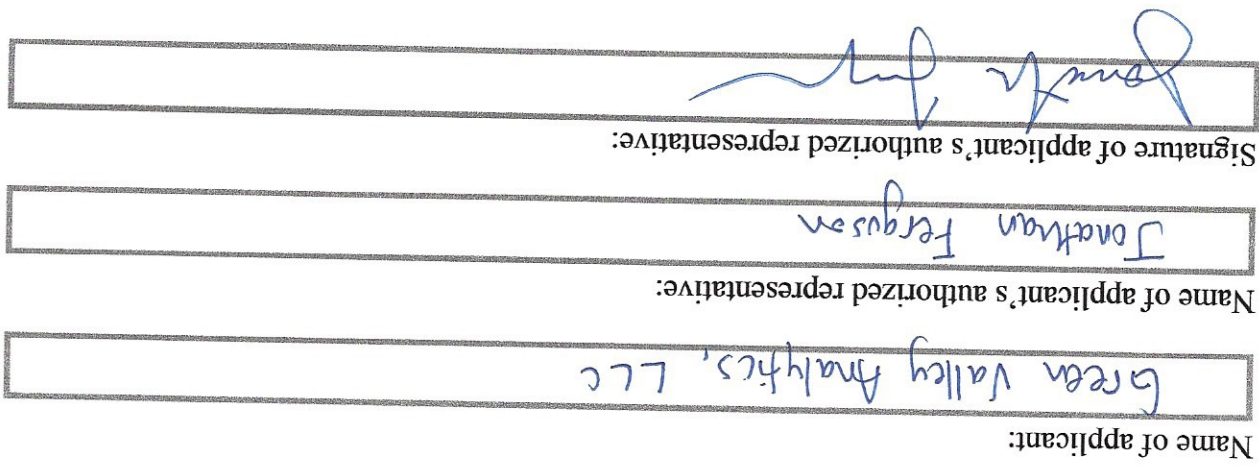 Name of applicant:
Green Valley Analytics, LLC
Name of applicant's authorized representative:
Jonathan Ferguson
Signature of applicant's authorized representative: